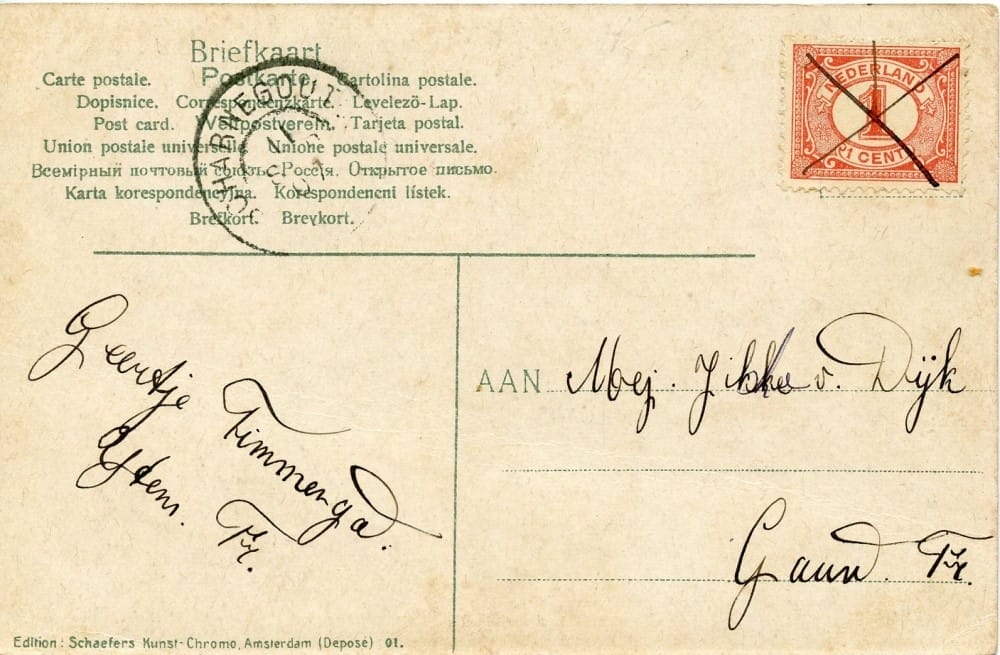 Briefkaart
Carte postale. Postkarte. Cartolina postale.
Dopisnice. Correspondenzkarte. Levelezö-Lap.
Post card. Weltpostverein. Tarjeta postal.
Union postale universelle. Unione postale universale.
Всемірный почтовый союзъ. Россія. Открытое письмо.
Karta korespondencyjna. Korespondencni lístek.
Brefkort. Brevkort.
SCHARNEGOUT
NEDERLAND
1
1 CENT
AAN Mej. Jikke v. Dijk
Gauw. Fr.
Geertje Timmenga.
Fr.
Edition: Schaefers Kunst-Chromo, Amsterdam (Deposé) 01.